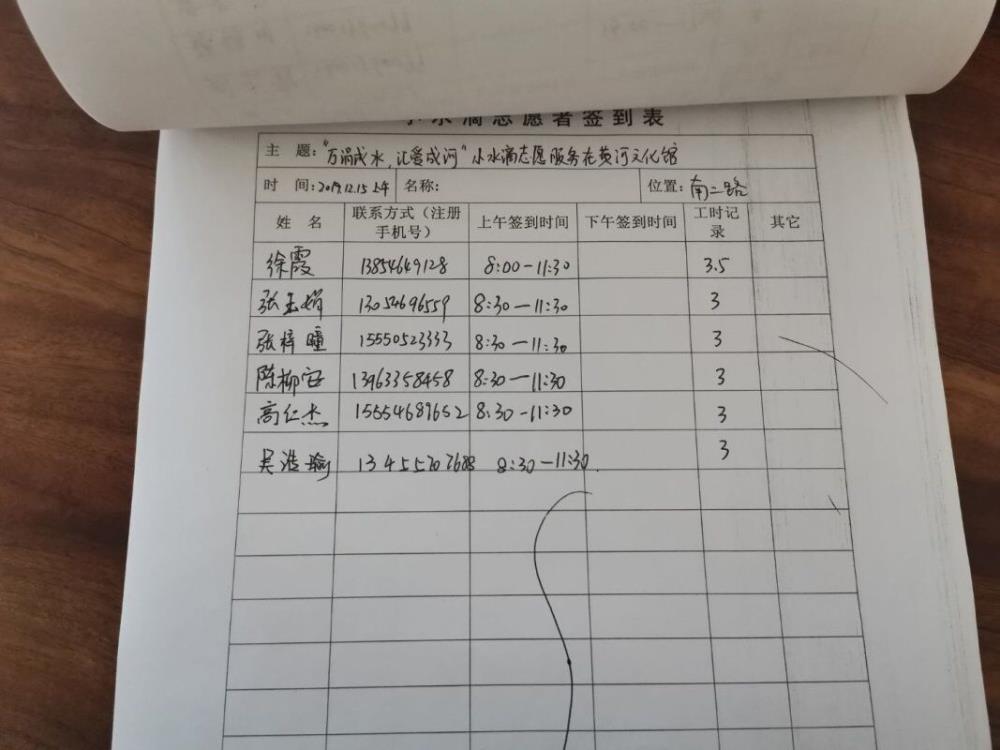 小水滴志愿者签到表
主 题:"万涓成水,汇爱成河"小水滴志愿服务在黄河文化馆
时 间:2019.12.15上午 名称: 位置:南二路
姓 名 联系方式(注册手机号) 上午签到时间 下午签到时间 工时记录 其它
徐霞 13854649128 8:00-11:30 3.5
张玉娟 13054696559 8:30-11:30 3
张梓瞳 15550523333 8:30-11:30 3
陈柳安 13963358458 8:30-11:30 3
高仁杰 15554689652 8:30-11:30 3
吴浩瑜 13455707688 8:30-11:30. 3